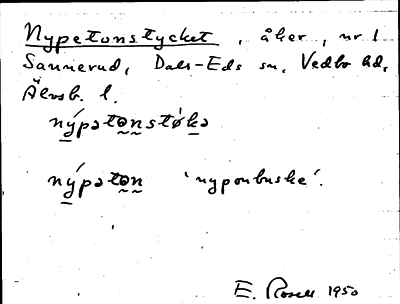 Nypetonstycket, åker, nr 1
Sannerud, Dals-Eds sn, Vedbo hd,
Älvsb. l.
nýpətənstøkə
nýpətən 'nyponbuske'.
E. Rosell 1950